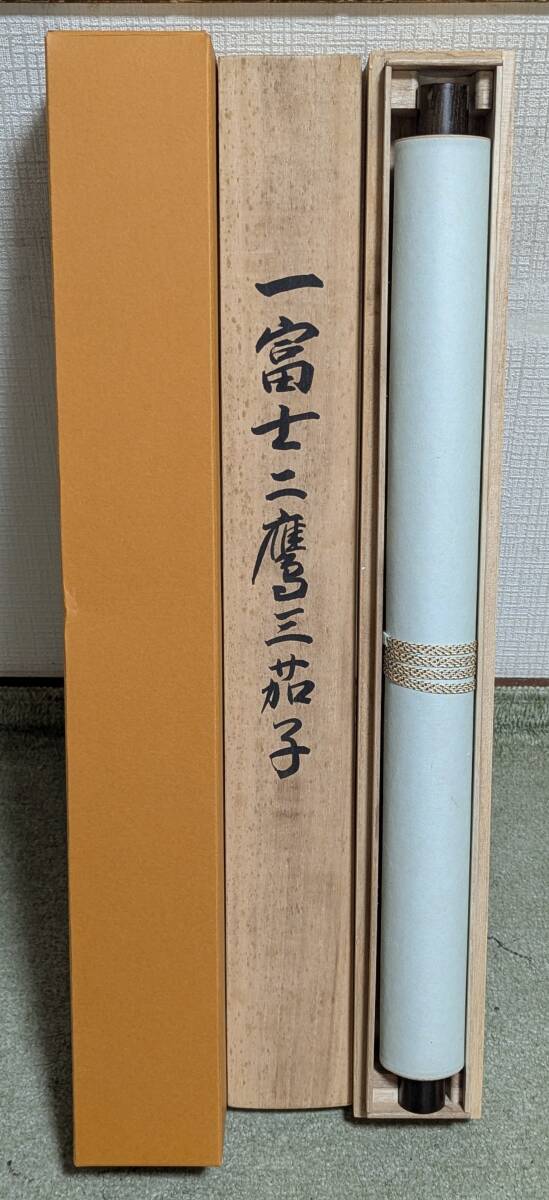 一富士二鷹三茄子